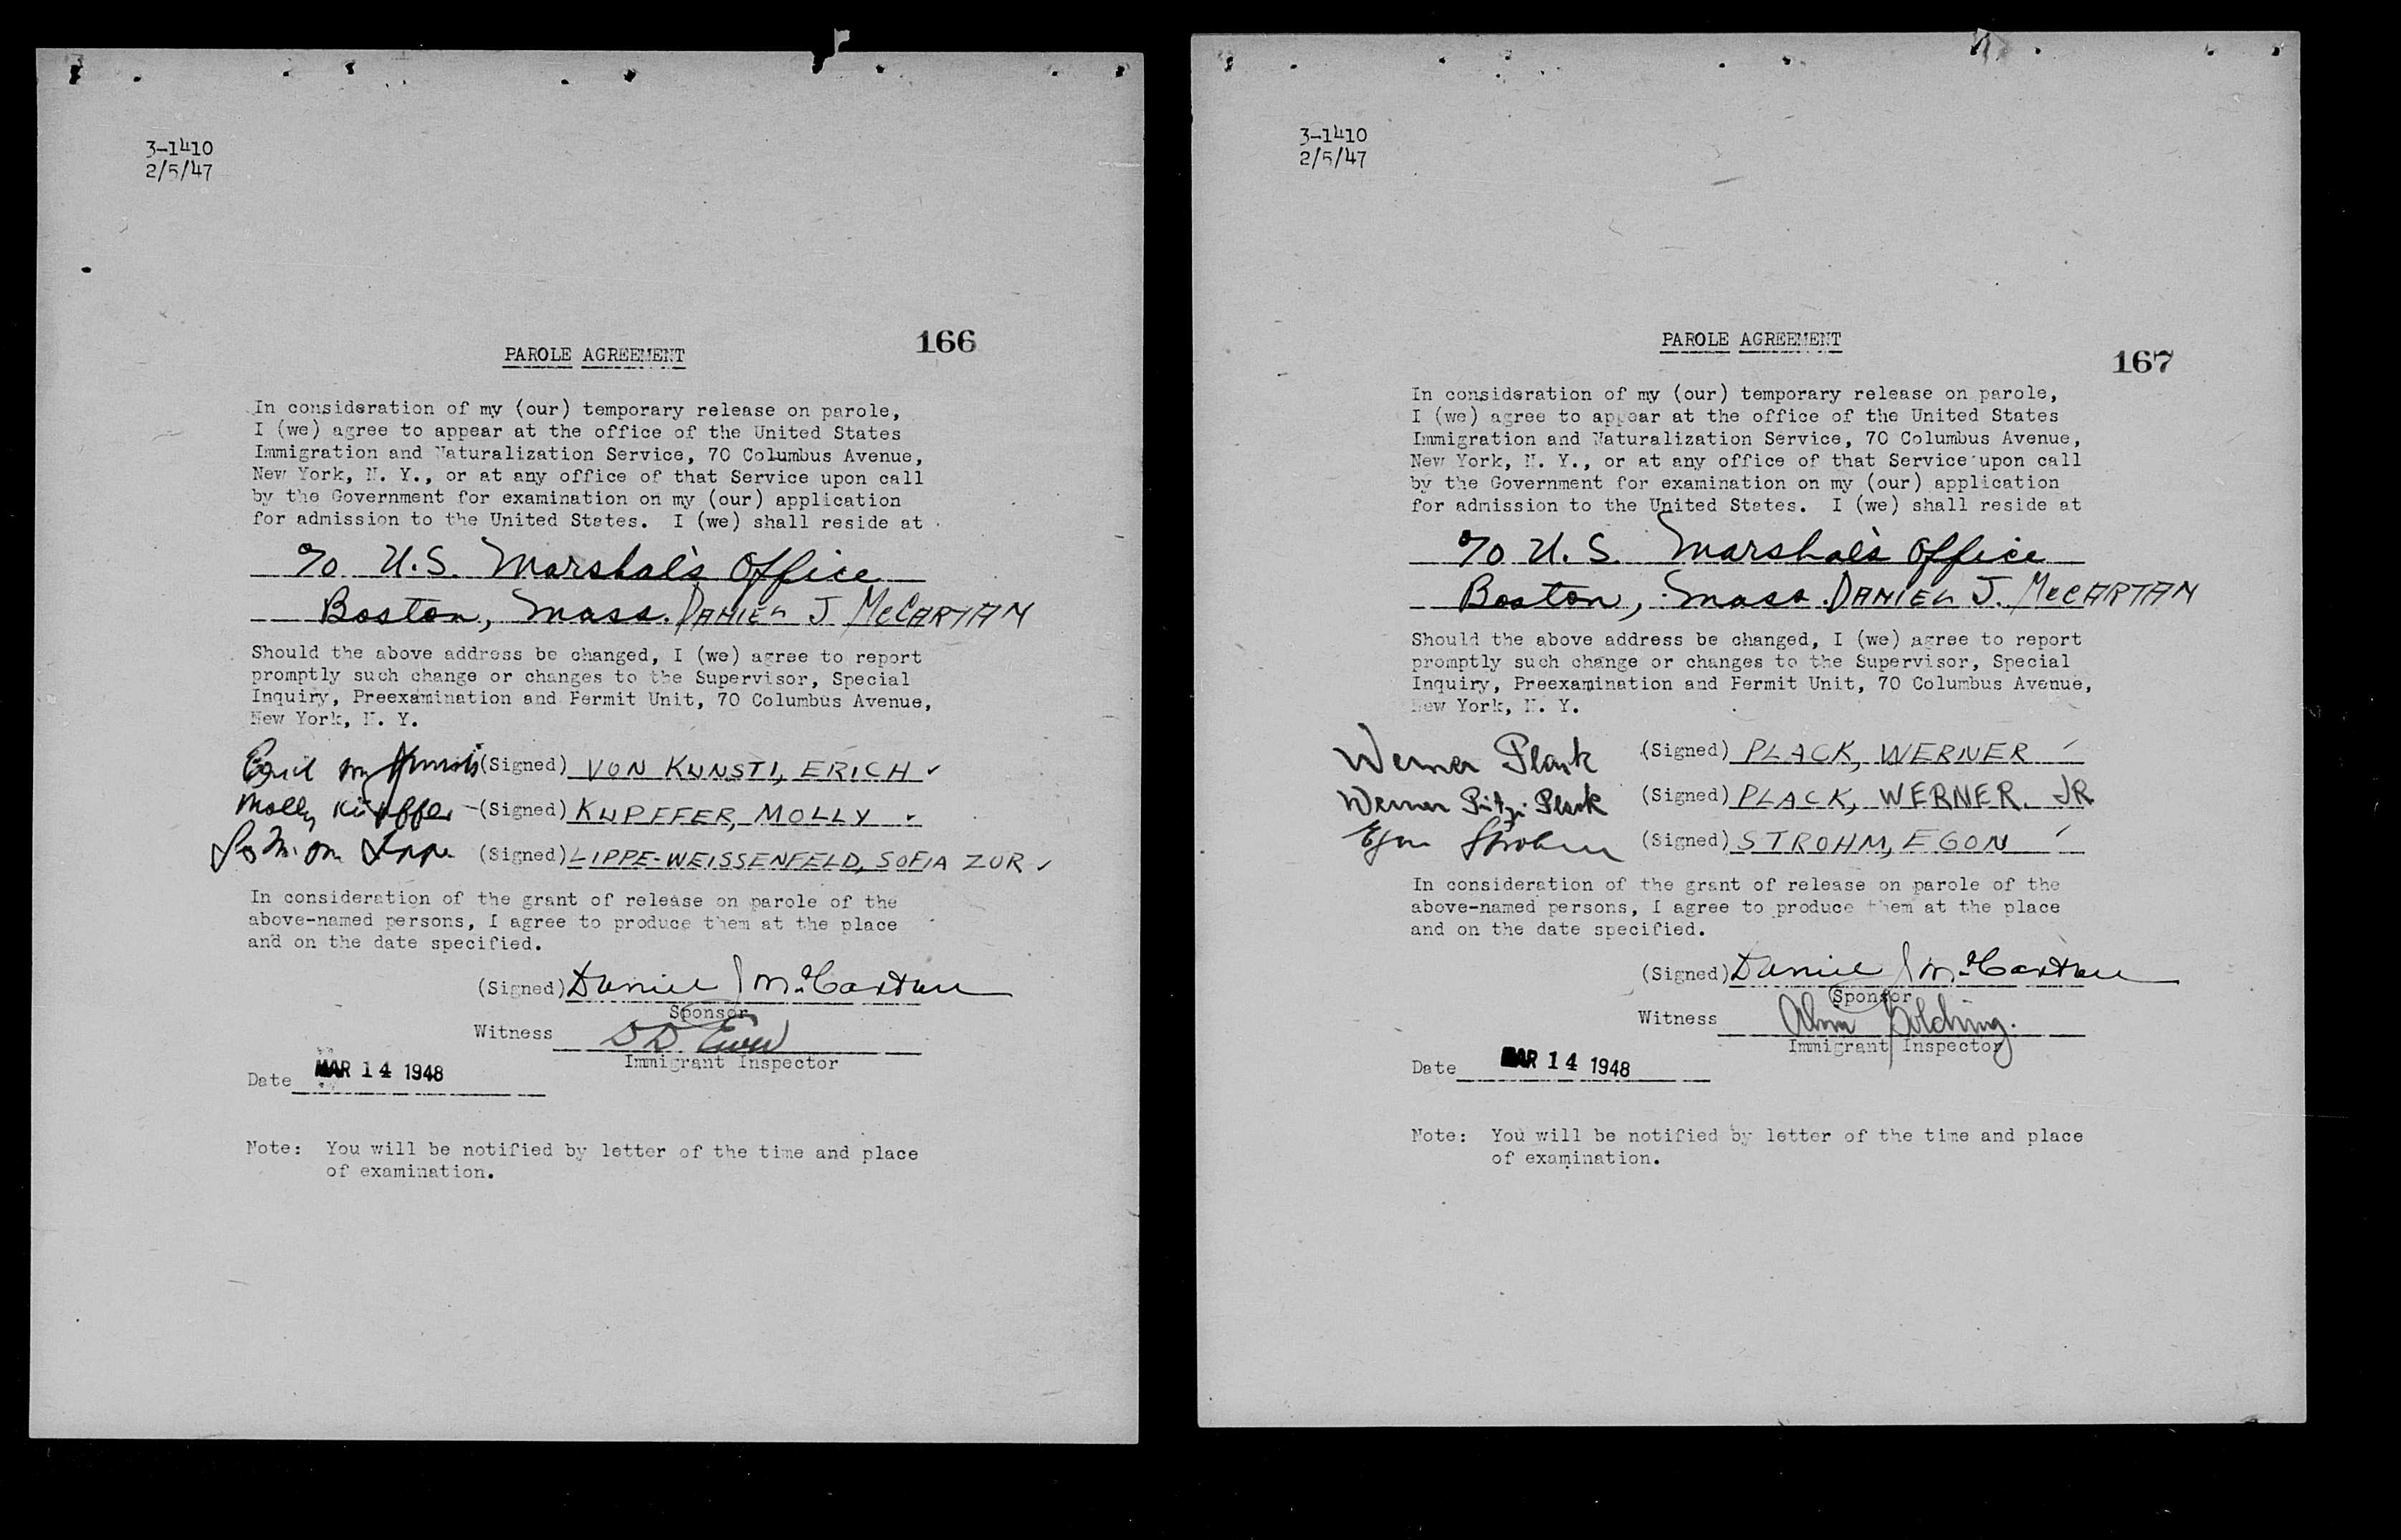 3-1410
2/5/47
166
PAROLE AGREEMENT
In consideration of my (our) temporary release on parole,
I (we) agree to appear at the office of the United States
Immigration and Naturalization Service, 70 Columbus Avenue,
New York, N. Y., or at any office of that Service upon call
by the Government for examination on my (our) application
for admission to the United States. I (we) shall reside at
c/o U.S. Marshal's Office
Boston, Mass. DANIEL J McCARTAN
Should the above address be changed, I (we) agree to report
promptly such change or changes to the Supervisor, Special
Inquiry, Preexamination and Permit Unit, 70 Columbus Avenue,
New York, N. Y.
(Signed) VON KUNSTI, ERICH ✓
Molly Küpffer (Signed) KUPFFER, MOLLY ✓
(Signed) LIPPE-WEISSENFELD, SOFIA ZUR ✓
In consideration of the grant of release on parole of the
above-named persons, I agree to produce them at the place
and on the date specified.
(Signed) Daniel J McCartan
Sponsor
Witness
Immigrant Inspector
Date MAR 14 1948
Note: You will be notified by letter of the time and place
of examination.
3-1410
2/5/47
PAROLE AGREEMENT
167
In consideration of my (our) temporary release on parole,
I (we) agree to appear at the office of the United States
Immigration and Naturalization Service, 70 Columbus Avenue,
New York, N. Y., or at any office of that Service upon call
by the Government for examination on my (our) application
for admission to the United States. I (we) shall reside at
c/o U.S. Marshal's Office
Boston, Mass. DANIEL J. McCARTAN
Should the above address be changed, I (we) agree to report
promptly such change or changes to the Supervisor, Special
Inquiry, Preexamination and Permit Unit, 70 Columbus Avenue,
New York, N. Y.
Werner Plack (Signed) PLACK, WERNER ✓
Werner Pitzi Plack (Signed) PLACK, WERNER, JR
Egon Strohm (Signed) STROHM, EGON ✓
In consideration of the grant of release on parole of the
above-named persons, I agree to produce them at the place
and on the date specified.
(Signed) Daniel J McCartan
Sponsor
Witness
Immigrant Inspector
Date MAR 14 1948
Note: You will be notified by letter of the time and place
of examination.